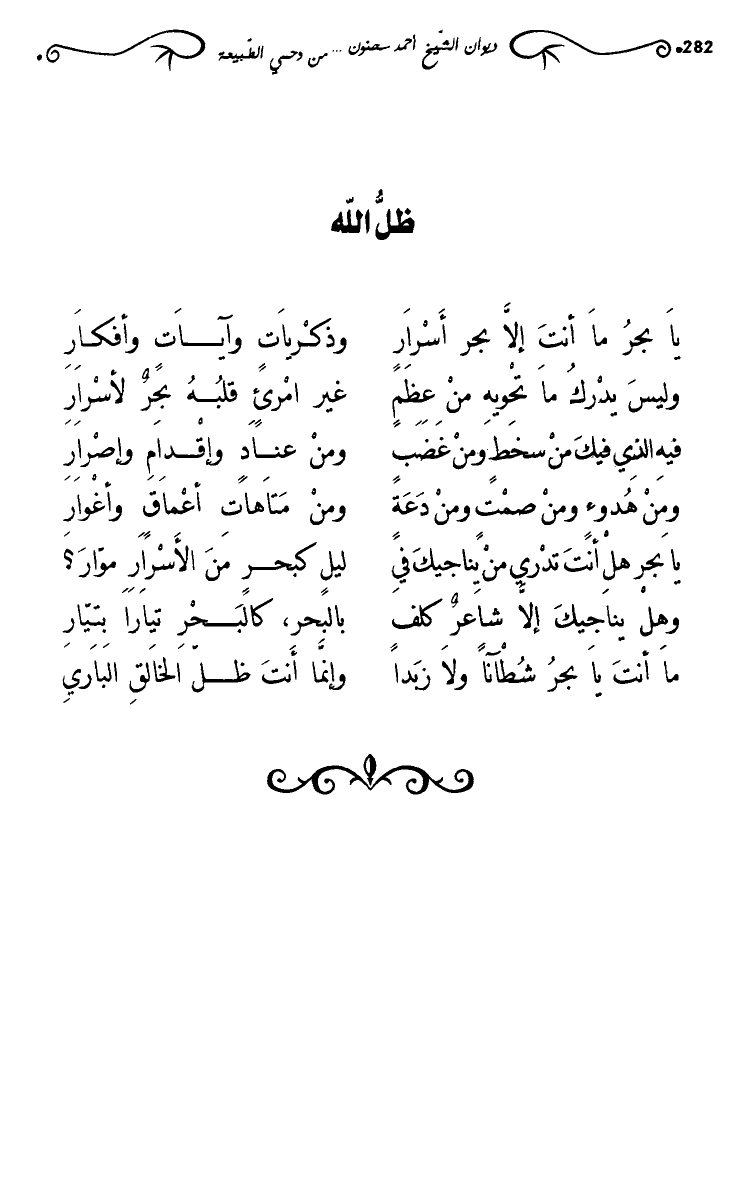 282 ديوان الشّيخ أحمد سحنون ... من وحي الطّبيعة
ظلُّ اللّه
يا بحرُ ما أنتَ إلاَّ بحر أَسْرارِ وذكْرياتٍ وآيــاتٍ وأفكـارِ
وليسَ يدْركُ ما تحْويهِ منْ عِظَمٍ غير امْرئٍ قلبُــهُ بحْرٌ لأسْرارِ
فيهِ الذي فيكَ منْ سخطٍ ومنْ غَضَبٍ ومنْ عنــادٍ وإقْــدامٍ وإصْرارِ
ومنْ هُدوءٍ ومنْ صمْتٍ ومنْ دَعَةٍ ومنْ مَتاهاتِ أعْماقٍ وأغْوارِ
يا بحر هلْ أنْتَ تدْري منْ يناجيكَ في ليل كبحــرٍ منَ الأَسْرارِ موّارِ؟
وهلْ يناجيكَ إلاَّ شاعرٌ كلف بالبحرِ، كالبَــحْرِ تيارا بتـيّارِ
ما أنتَ يا بحرُ شُطْآنًا ولا زبَداً وإنمَّا أَنتَ ظــلّ الخالقِ الباري